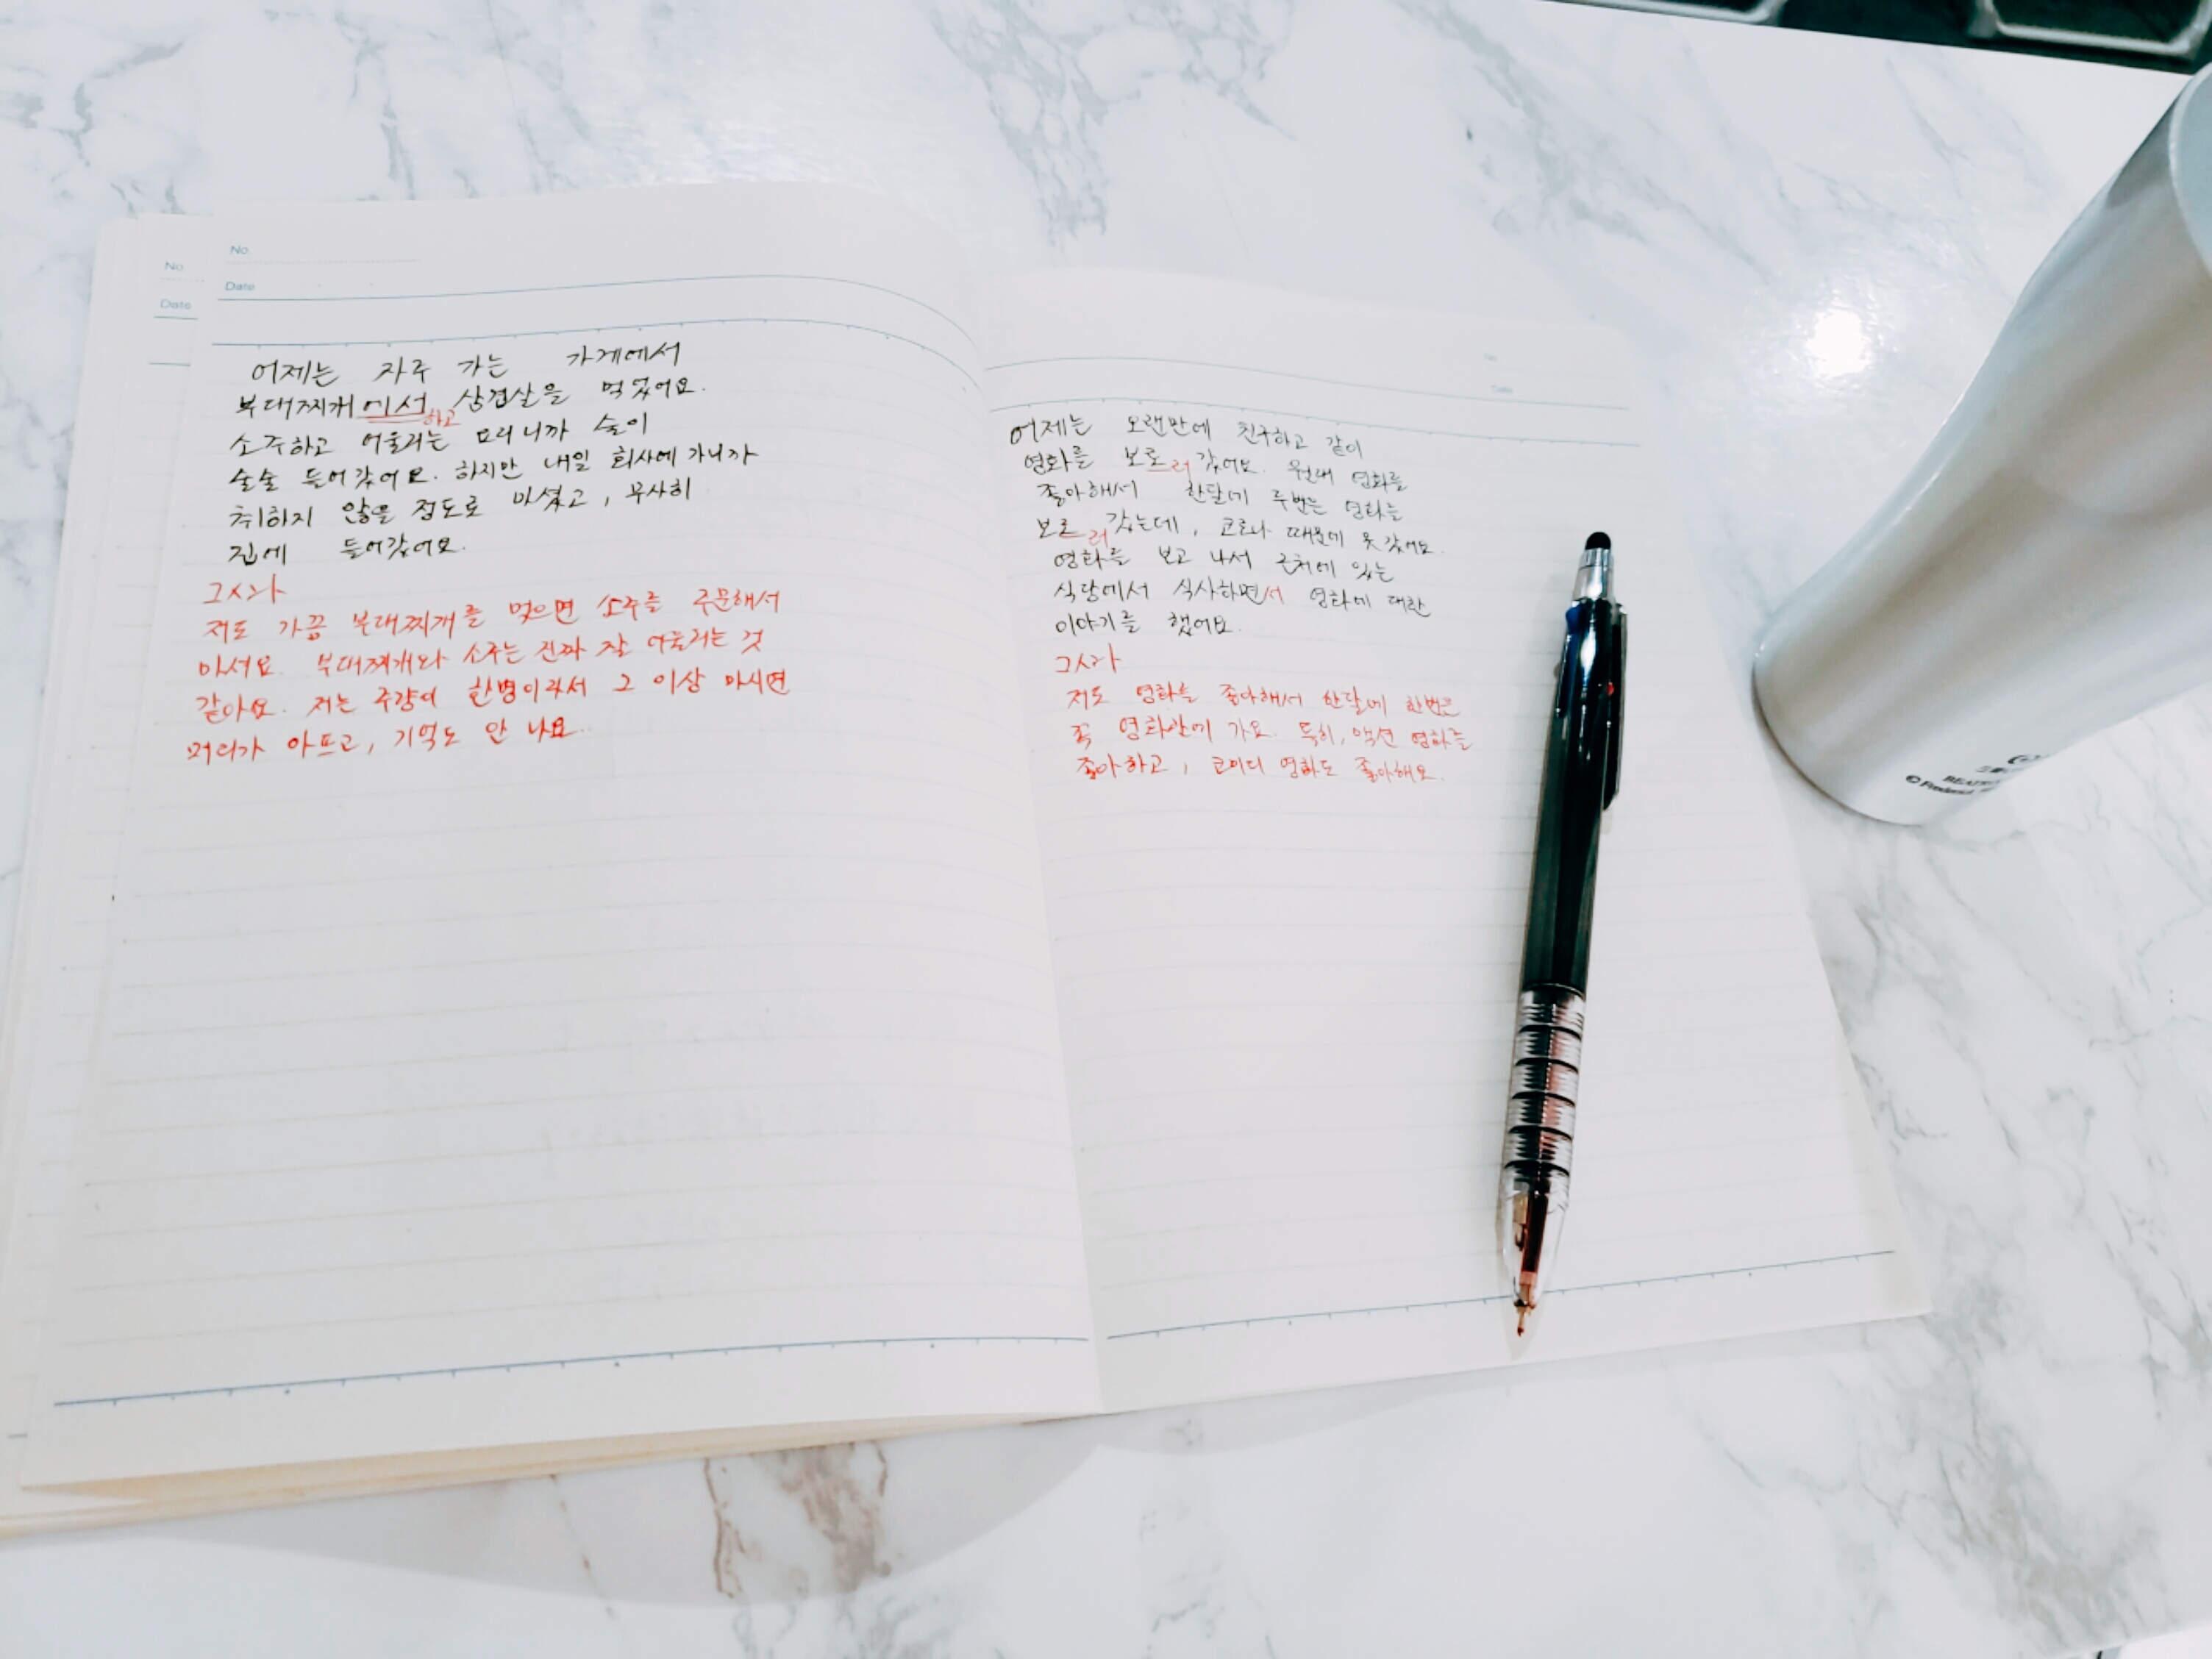 No.
Date
No
Date
어제는 자주 가는 가게에서
부대찌개에서 삼겹살을 먹었어요.
하고
소주하고 어울리는 요리니까 술이
술술 들어갔어요. 하지만 내일 회사에 가니까
취하지 않을 정도로 마셨고, 무사히
집에 들어갔어요.
저도 가끔 부대찌개를 먹으면 소주를 주문해서
마셔요. 부대찌개와 소주는 진짜 잘 어울리는 것
같아요. 저는 주량이 한병이라서 그 이상 마시면
머리가 아프고, 기억도 안 나요.
No
Date
어제는 오랜만에 친구하고 같이
영화를 보로러 갔어요. 원래 영화를
좋아해서 한달에 두번은 영화를
보로러 갔는데, 코로나 때문에 못 갔어요.
영화를 보고 나서 근처에 있는
식당에서 식사하면서 영화에 대한
이야기를 했어요.
저도 영화를 좋아해서 한달에 한번은
꼭 영화관에 가요. 특히, 액션 영화를
좋아하고, 코미디 영화도 좋아해요.
© Frederick